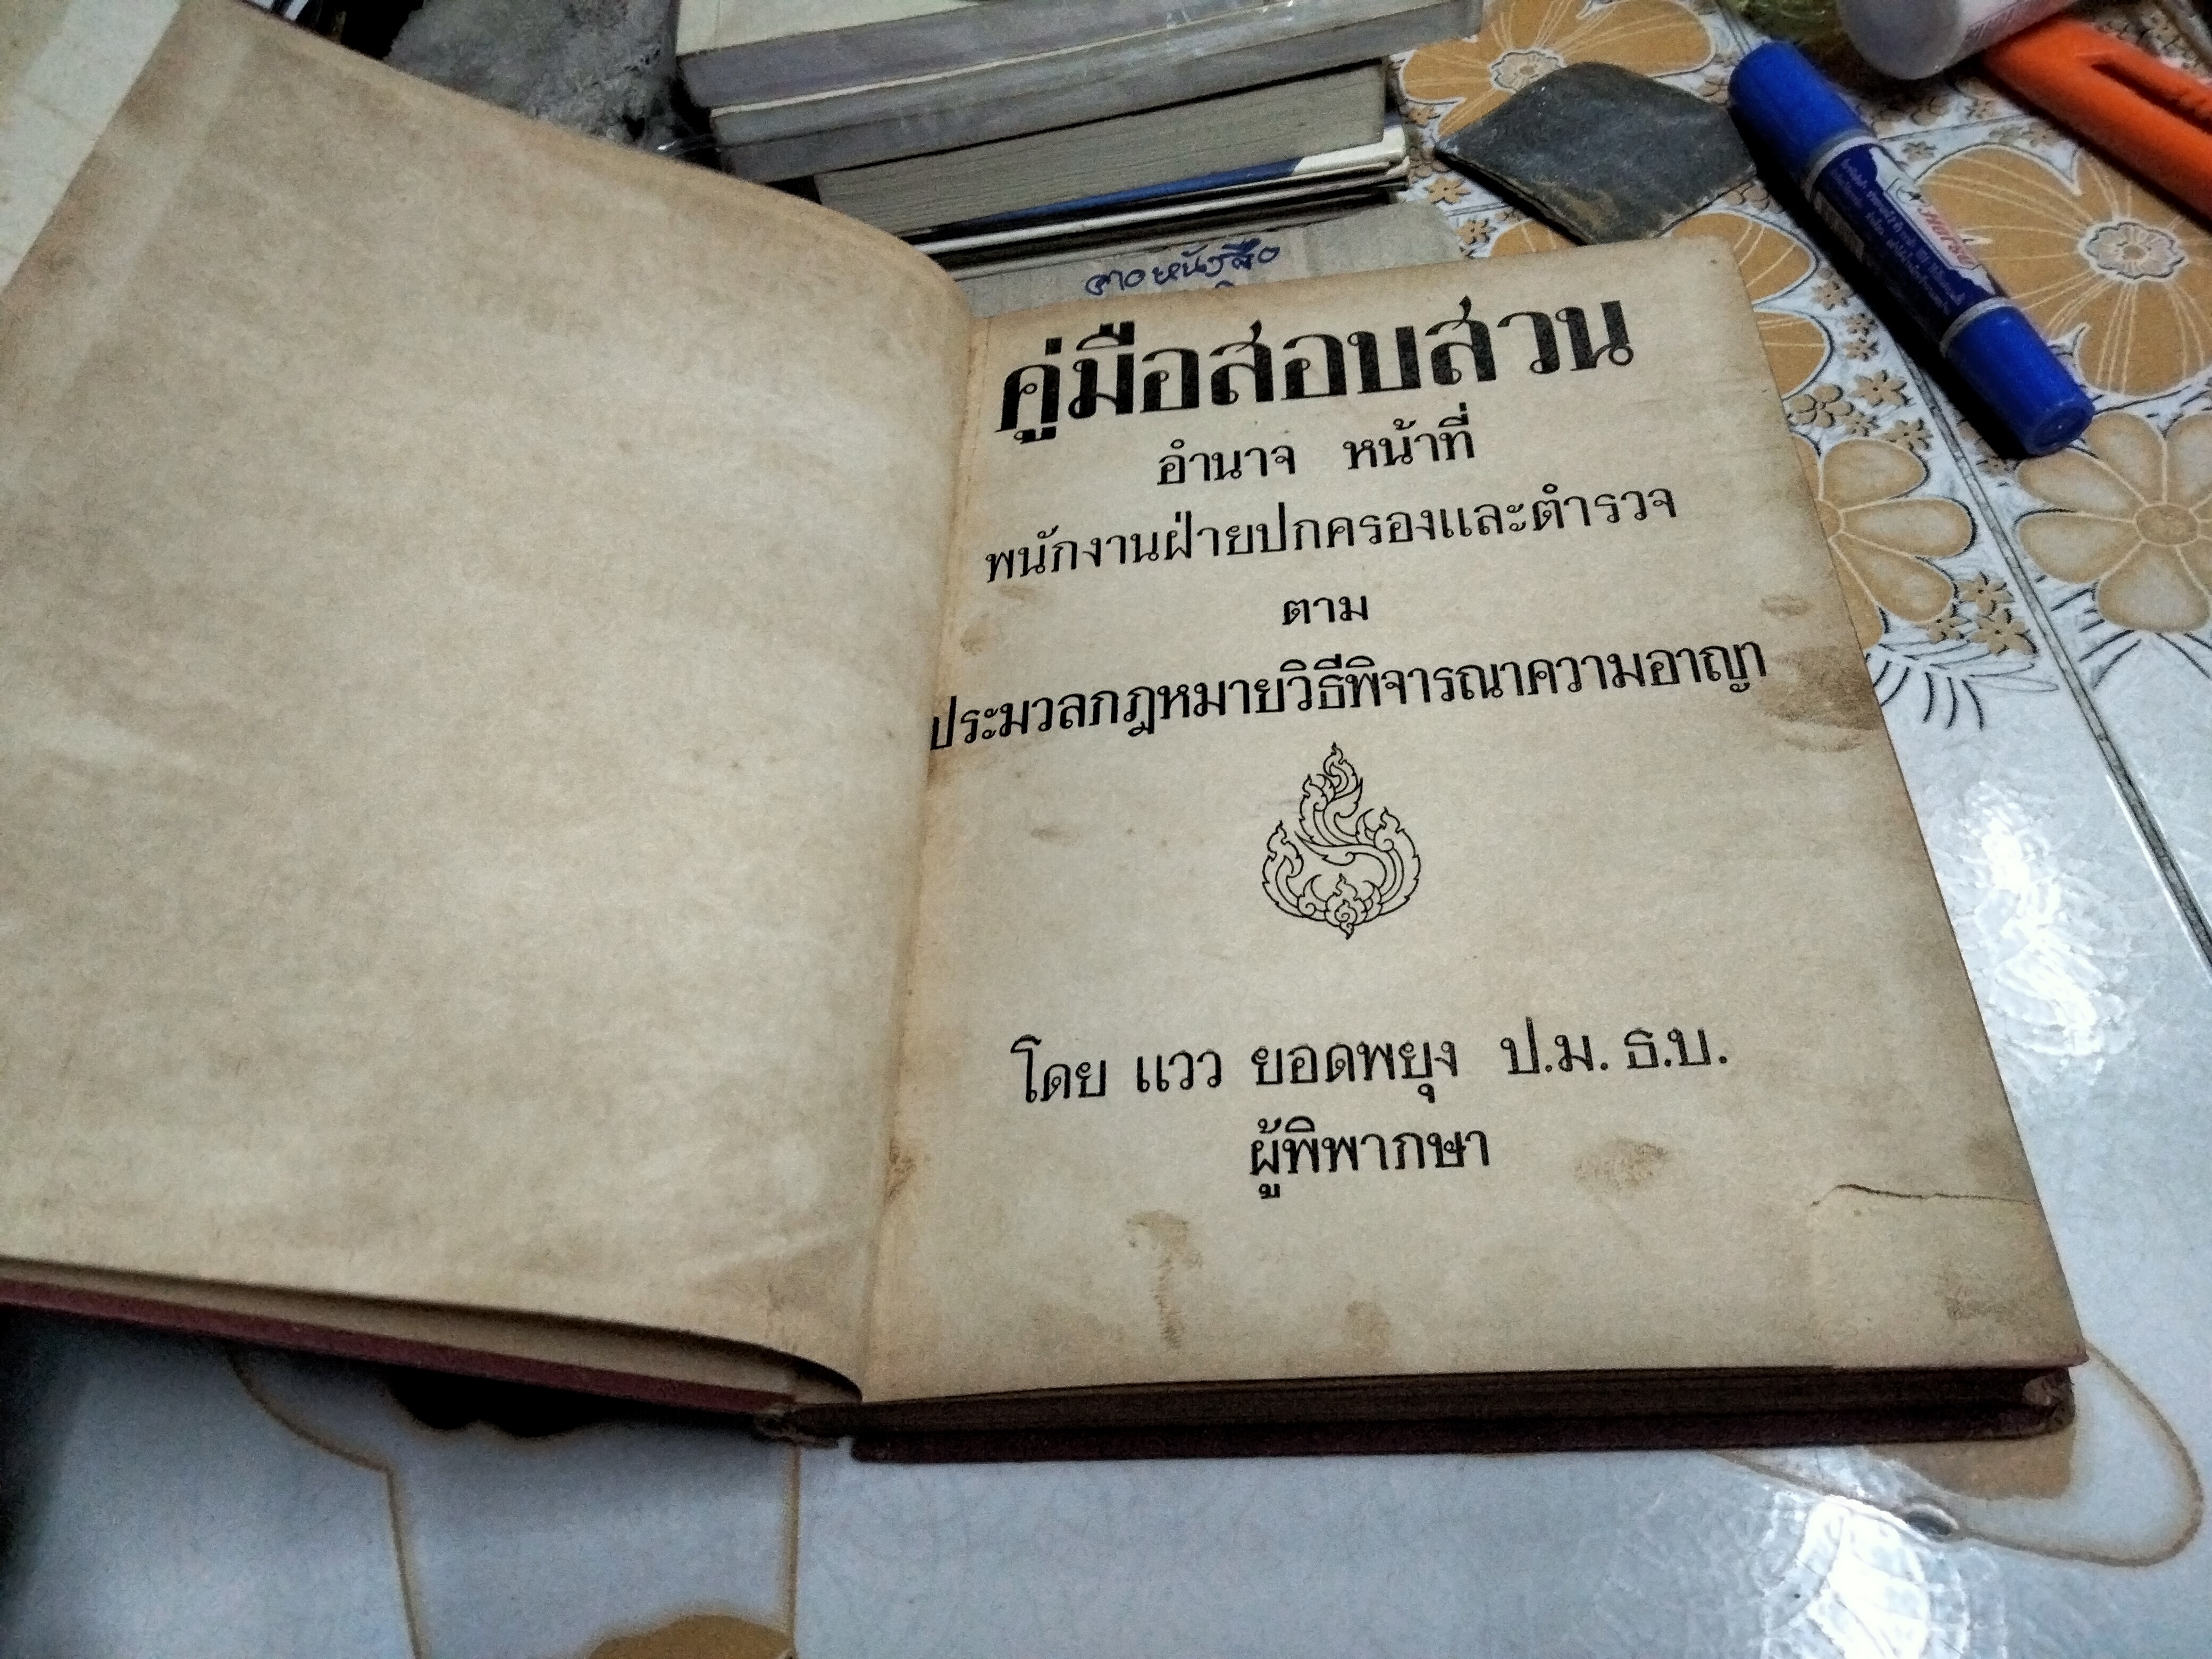 คู่มือสอบสวน
อำนาจ หน้าที่
พนักงานฝ่ายปกครองและตำรวจ
ตาม
ประมวลกฎหมายวิธีพิจารณาความอาญา
โดย แวว ยอดพยุง ป.ม. ธ.บ.
ผู้พิพากษา